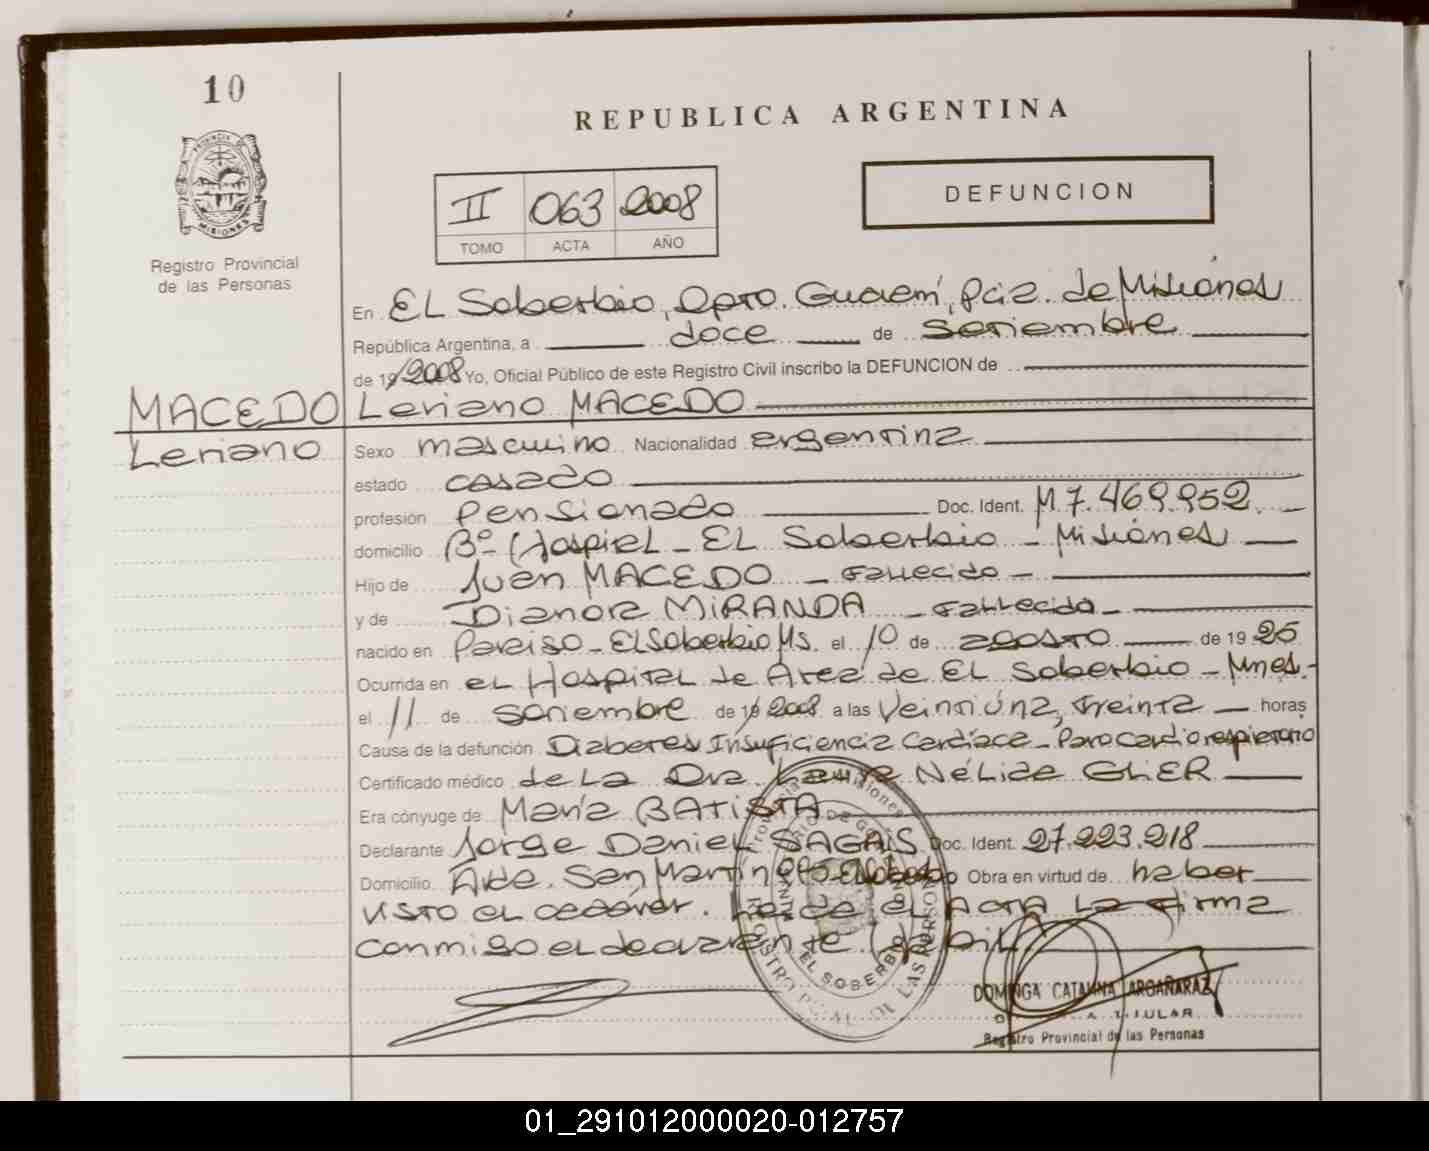 10
REPUBLICA ARGENTINA
PROVINCIA DE MISIONES
Registro Provincial
de las Personas
II 063 2008
TOMO ACTA AÑO
DEFUNCION
En EL Soberbio, Dpto. Guaraní, Pcia. de Misiones
República Argentina, a doce de Setiembre
de 19/2008 Yo, Oficial Público de este Registro Civil inscribo la DEFUNCION de
MACEDO Leriano MACEDO
Leriano Sexo masculino Nacionalidad argentina
estado casado
profesión Pensionado Doc. Ident. M 7.469.952.
domicilio Bº Hospital - EL Soberbio - Misiones
Hijo de Juan MACEDO - Fallecido -
y de Dianora MIRANDA - Fallecida -
nacido en Paraiso - El Soberbio Ms. el 10 de agosto de 19 25
Ocurrida en el Hospital de Area de EL Soberbio - Mnes.-
el 11 de Setiembre de 19/2008 a las Veintiuna, treinta horas
Causa de la defunción Diabetes Insuficiencia Cardíaca - Paro Cardiorespiratorio
Certificado médico de La Dra. Nélida GLIER
Era cónyuge de María BATISTA
Declarante Jorge Daniel SAGAIS Doc. Ident. 27.223.218
Domicilio Avda. San Martín El Soberbio Obra en virtud de haber
visto el cadáver. Leída el ACTA La firma
conmigo el declarante
EL SOBERBIO
DOMINGA CATALINA ARGAÑARAZ
TITULAR
Registro Provincial de las Personas
01_291012000020-012757